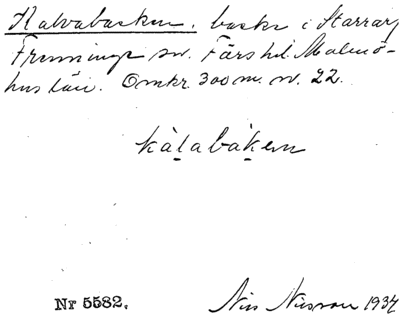 Kalvabacken. backe i Starrarp
Frenninge sn. Färs hd. Malmö-
hus län. Omkr. 300 m. n. 22.
kàlabàken
Nr 5582.
Nils Nilsson 1934